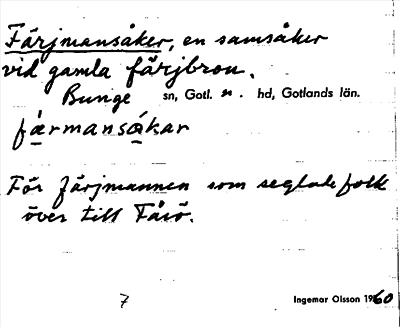 Färjmansåker, en samsåker
vid gamla färjbron.
Bunge sn, Gotl. n. hd, Gotlands län.
færmansákar
För färjmannen som seglade folk
över till Fårö.
7
Ingemar Olsson 1960